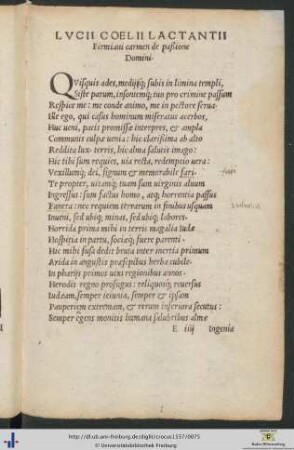 LVCII COELII LACTANTII
Firmiani carmen de passione
Domini.
QVisquis ades, medijsq; subis in limina templi,
Siste parum, insontemq; tuo pro crimine passum
Respice me: me conde animo, me in pectore serua
Ille ego, qui casus hominum miseratus acerbos,
Huc ueni, pacis promissæ interpres, & ampla
Communis culpæ uenia: hic clarissima ab alto
Reddita lux terris, hic alma salutis imago:
Hic tibi sum requies, uia recta, redemptio uera:
Vexillumq; dei, signum & memorabile fari.
Te propter, uitamq; tuam sum uirginis aluum
Ingressus: sum factus homo, atq; horrentia passus
Funera: nec requiem terrarum in finibus usquam
Inueni, sed ubiq; minas, sed ubiq; labores.
Horrida prima mihi in terris magalia Iudæ
Hospitia in partu, sociæq; fuere parenti.
Hic mihi fusa dedit bruta inter inertia primum
Arida in angustis præsepibus herba cubile.
In pharijs primos uixi regionibus annos.
Herodis regno profugus: reliquosq; reuersus
Iudæam, semper ieiunia, semper & ipsam
Pauperiem extremam, & rerum inferiora secutus:
Semper agens monitis humana salubribus almæ
E iiij ingenia
http://dl.ub.uni-freiburg.de/diglit/crocus1557/0075